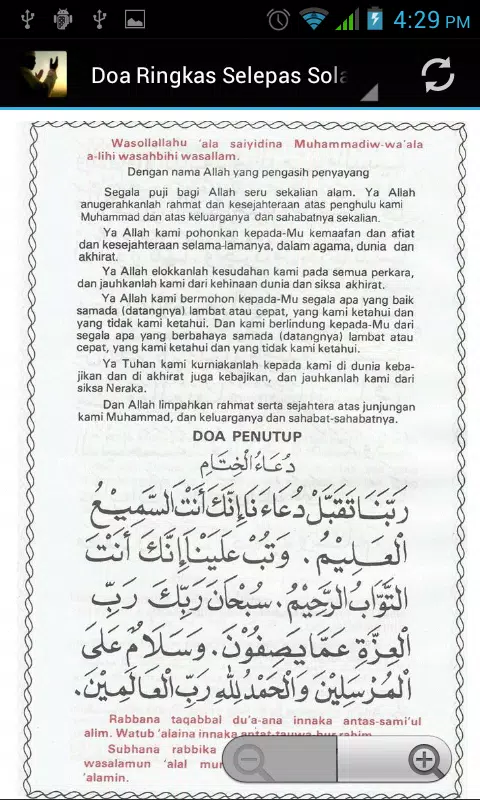 4:29 PM
Doa Ringkas Selepas Sola
Wasollallahu 'ala saiyidina Muhammadiw-wa'ala
a-lihi wasahbihi wasallam.
Dengan nama Allah yang pengasih penyayang
Segala puji bagi Allah seru sekalian alam. Ya Allah
anugerahkanlah rahmat dan kesejahteraan atas penghulu kami
Muhammad dan atas keluarganya dan sahabatnya sekalian.
Ya Allah kami pohonkan kepada-Mu kemaafan dan afiat
dan kesejahteraan selama-lamanya, dalam agama, dunia dan
akhirat.
Ya Allah elokkanlah kesudahan kami pada semua perkara,
dan jauhkanlah kami dari kehinaan dunia dan siksa akhirat.
Ya Allah kami bermohon kepada-Mu segala apa yang baik
samada (datangnya) lambat atau cepat, yang kami ketahui dan
yang tidak kami ketahui. Dan kami berlindung kepada-Mu dari
segala apa yang berbahaya samada (datangnya) lambat atau
cepat, yang kami ketahui dan yang tidak kami ketahui.
Ya Tuhan kami kurniakanlah kepada kami di dunia keba-
jikan dan di akhirat juga kebajikan, dan jauhkanlah kami dari
siksa Neraka.
Dan Allah limpahkan rahmat serta sejahtera atas junjungan
kami Muhammad, dan keluarganya dan sahabat-sahabatnya.
DOA PENUTUP
دُعَاءُ الْخِتَامِ
رَبَّنَا تَقَبَّلْ دُعَاءَ نَا إِنَّكَ أَنْتَ السَّمِيْعُ
الْعَلِيْمُ. وَتُبْ عَلَيْنَا إِنَّكَ أَنْتَ
التَّوَّابُ الرَّحِيْمُ. سُبْحَانَ رَبِّكَ رَبِّ
الْعِزَّةِ عَمَّا يَصِفُوْنَ. وَسَلَامٌ عَلَى
الْمُرْسَلِيْنَ وَالْحَمْدُ لِلّٰهِ رَبِّ الْعَالَمِيْنَ.
Rabbana taqabbal du'a-ana innaka antas-sami'ul
alim. Watub 'alaina innaka antat-tauwa-bur rahim.
Subhana rabbika
wasalamun 'alal mur
'alamin.